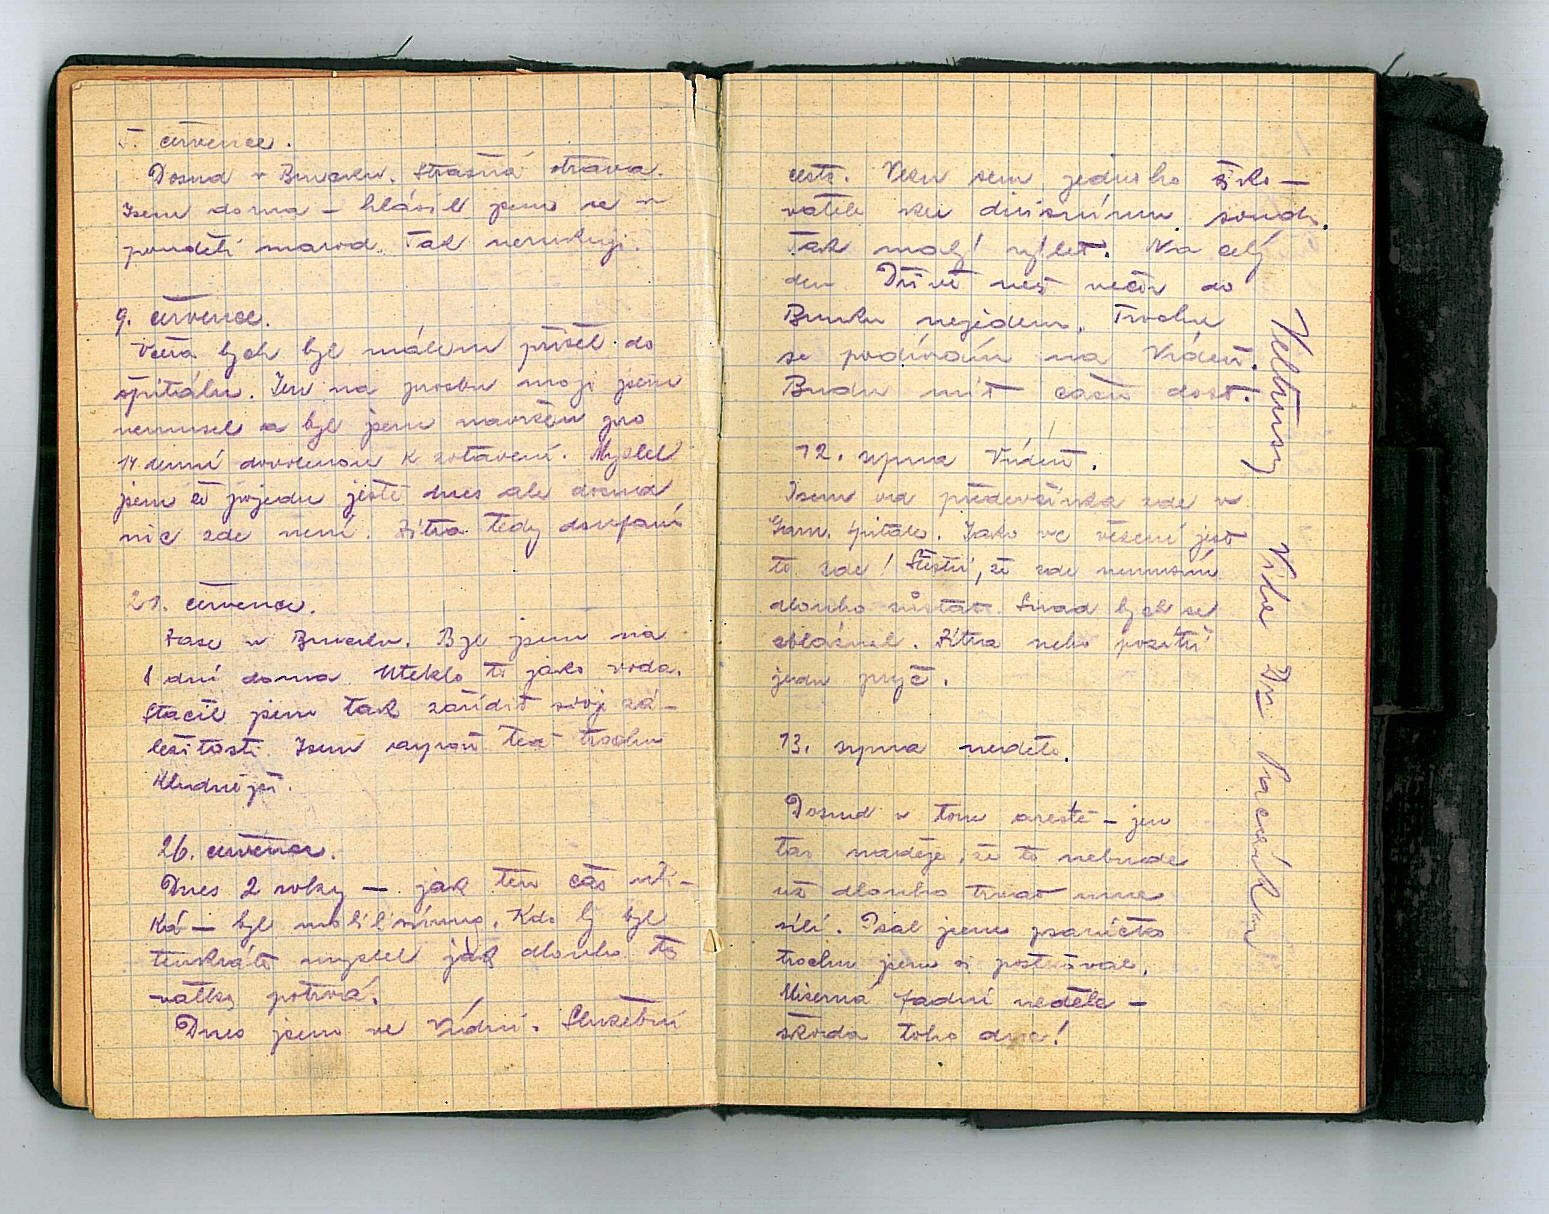 5. července.
Dosud v Brucku. Strašná otrava.
Jsem doma – hlásil jsem se v
pondělí marod. Tak nerukuji.
9. července.
Včera bych byl málem přišel do
špitálu. Jen na prosbu moji jsem
nemusel a byl jsem navržen pro
14 denní dovolenou k zotavení. Myslel
jsem že pojedu ještě dnes ale dosud
nic zde není. Zítra tedy doufám
21. července.
Zase v Brucku. Byl jsem na
8 dní doma. Uteklo to jako voda.
Stačil jsem tak zařídit svoji zá–
ležitosti. Jsem aspoň teď trochu
klidnější.
26. července.
Dnes 2 roky – jak ten čas utí–
ká – byl mobilisírung. Kdo by byl
tenkráte myslel jak dlouho to
válka potrvá.
Dnes jsem ve Vídni. Služební
cesta. Vezu sem jednoho šiko–
vatele ku divisnímu soudu.
Tak malý výlet. Na celý
den. Dříve než večer do
Brucku nejedem. Trochu
se podívám na Vídeň.
Budu mít času dost.
12. srpna Vídeň.
Jsem od předevčírka zde v
Garn. špitále. Jako ve vězení jest
to zde! Štěstí, že zde nemusím
dlouho zůstat. Snad bych se
zbláznil. Zítra nebo pozítří
jedu pryč.
13. srpna neděle.
Dosud v tom arestě – jen
ta naděje, že to nebude
už dlouho trvat mne
sílí. Psal jsem psaníčka
trochu jsem si postěžoval.
Miserná fadní neděle –
škoda toho dne!
Veltrusy Vila Dra